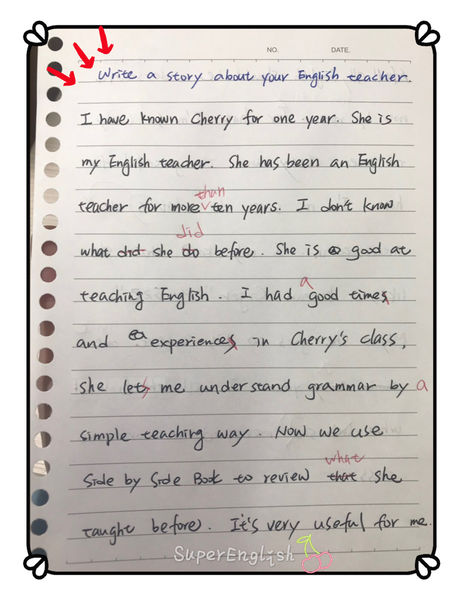 NO. DATE.
Write a story about your English teacher.
I have known Cherry for one year. She is
my English teacher. She has been an English
than
teacher for more ten years. I don't know
did
what did she do before. She is a good at
a
teaching English. I had good times
and experiences in Cherry's class,
she lets me understand grammar by a
simple teaching way. Now we use
what
Side by Side Book to review that she
taught before. It's very useful for me.
SuperEnglish